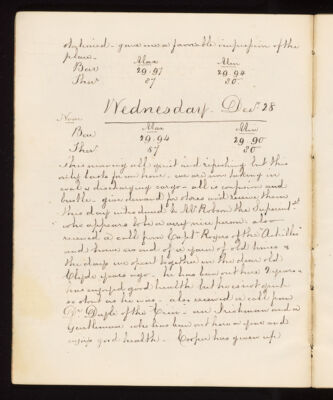 obtained - gave me a favorable impression of the
place.
Max Min
Bar 29.97 29.94
Ther 87 80
Wednesday Decr 28
Noon Max Min
Bar 29.94 29.90
Ther 87 80
This morning all quiet and but this
only lasts for an hour. we are now taking in
coal & discharging cargo - all is confusion and
bustle. give demand for stores and receive them
this day introduced to Mr the Superintt
who appears to be a very nice person. also
received a call from Capt of the Antilles
and have round of a yarn of old times &
the days we spent together in the dear old
Clyde years ago. he has been out here 2 years &
has enjoyed good health but he is not quite
so stout as he was. also received a call from
Dr of the an Irishman and a
Gentleman who has been out here a year and
enjoys good health. Cooper has given up